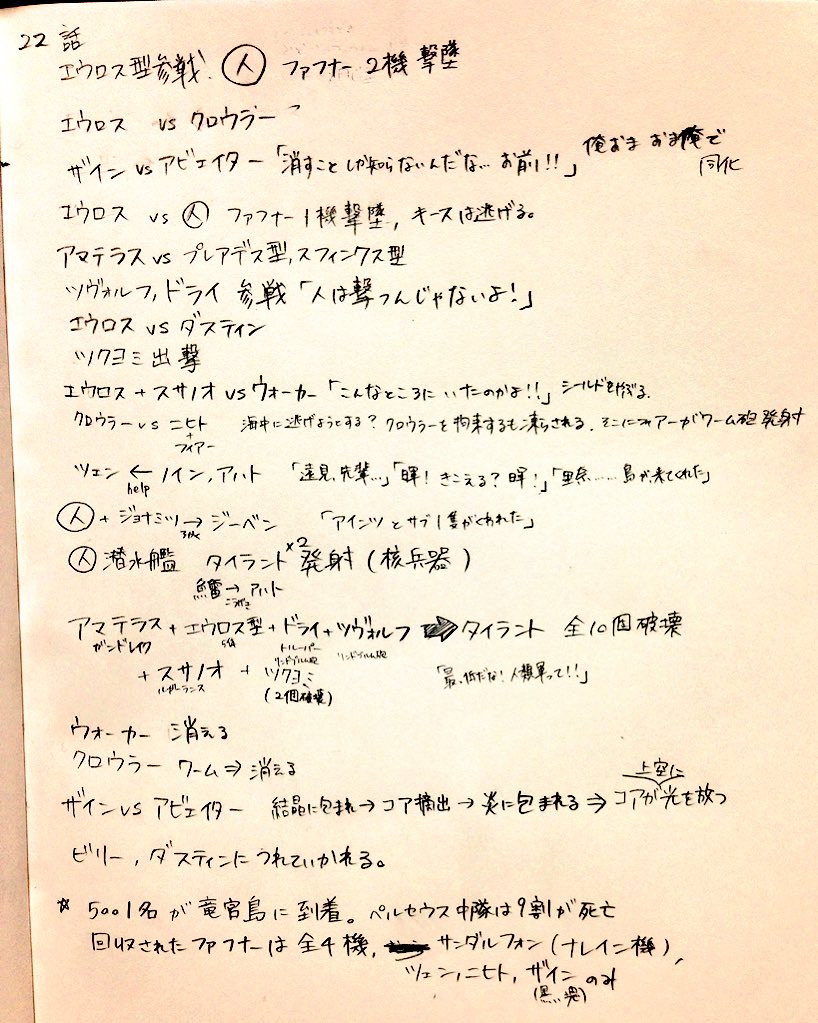 22 話
エウロス型参戦、人 ファフナー 2機 撃墜
エウロス vs クロウラー
ザイン vs アビエイター「消すことしか知らないんだな… お前!!」 俺おま おま俺で
同化
エウロス vs 人 ファフナー 1機撃墜, キースは逃げる。
アマテラス vs プレアデス型, スフィンクス型
ツヴォルフ, ドライ 参戦「人は撃つんじゃないよ!」
エウロス vs ダスティン
ツクヨミ 出撃
エウロス + スサノオ vs ウォーカー「こんなところに いたのかよ!!」 シールドを
クロウラー vs ニヒト 海中に逃げようとする? クロウラーを拘束するも凍らされる. そこにフィアーがワーム砲 発射
+
フィアー
ツェン ← ノイン, アハト 「遠見先輩…」「暉! きこえる? 暉!」「里奈…… 島が、来てくれた」
help
人 + ジョナミツ → ジーベン 「アインツとサブ1隻がくわれた」
人 潜水艦 タイラント×2 発射 (核兵器)
魚雷 → アハト
アマテラス + エウロス型 + ドライ + ツヴォルフ ⇒ タイラント 全10個破壊
ガンドレイク トルーパー
リンドブルム砲 リンドブルム砲
+ スサノオ + ツクヨミ 「最低だな! 人類軍って!!」
ルガーランス (2個破壊)
ウォーカー 消える
クロウラー ワーム ⇒ 消える
ザイン vs アビエイター 結晶に包まれ → コア摘出 → 炎に包まれる ⇒ 上空に コアが光を放つ
ビリー, ダスティンにつれていかれる。
☆ 5001名が竜宮島に到着。ペルセウス中隊は9割が死亡
回収されたファフナーは全4機, サンダルフォン (ナレイン機),
ツェン, ニヒト, ザイン のみ